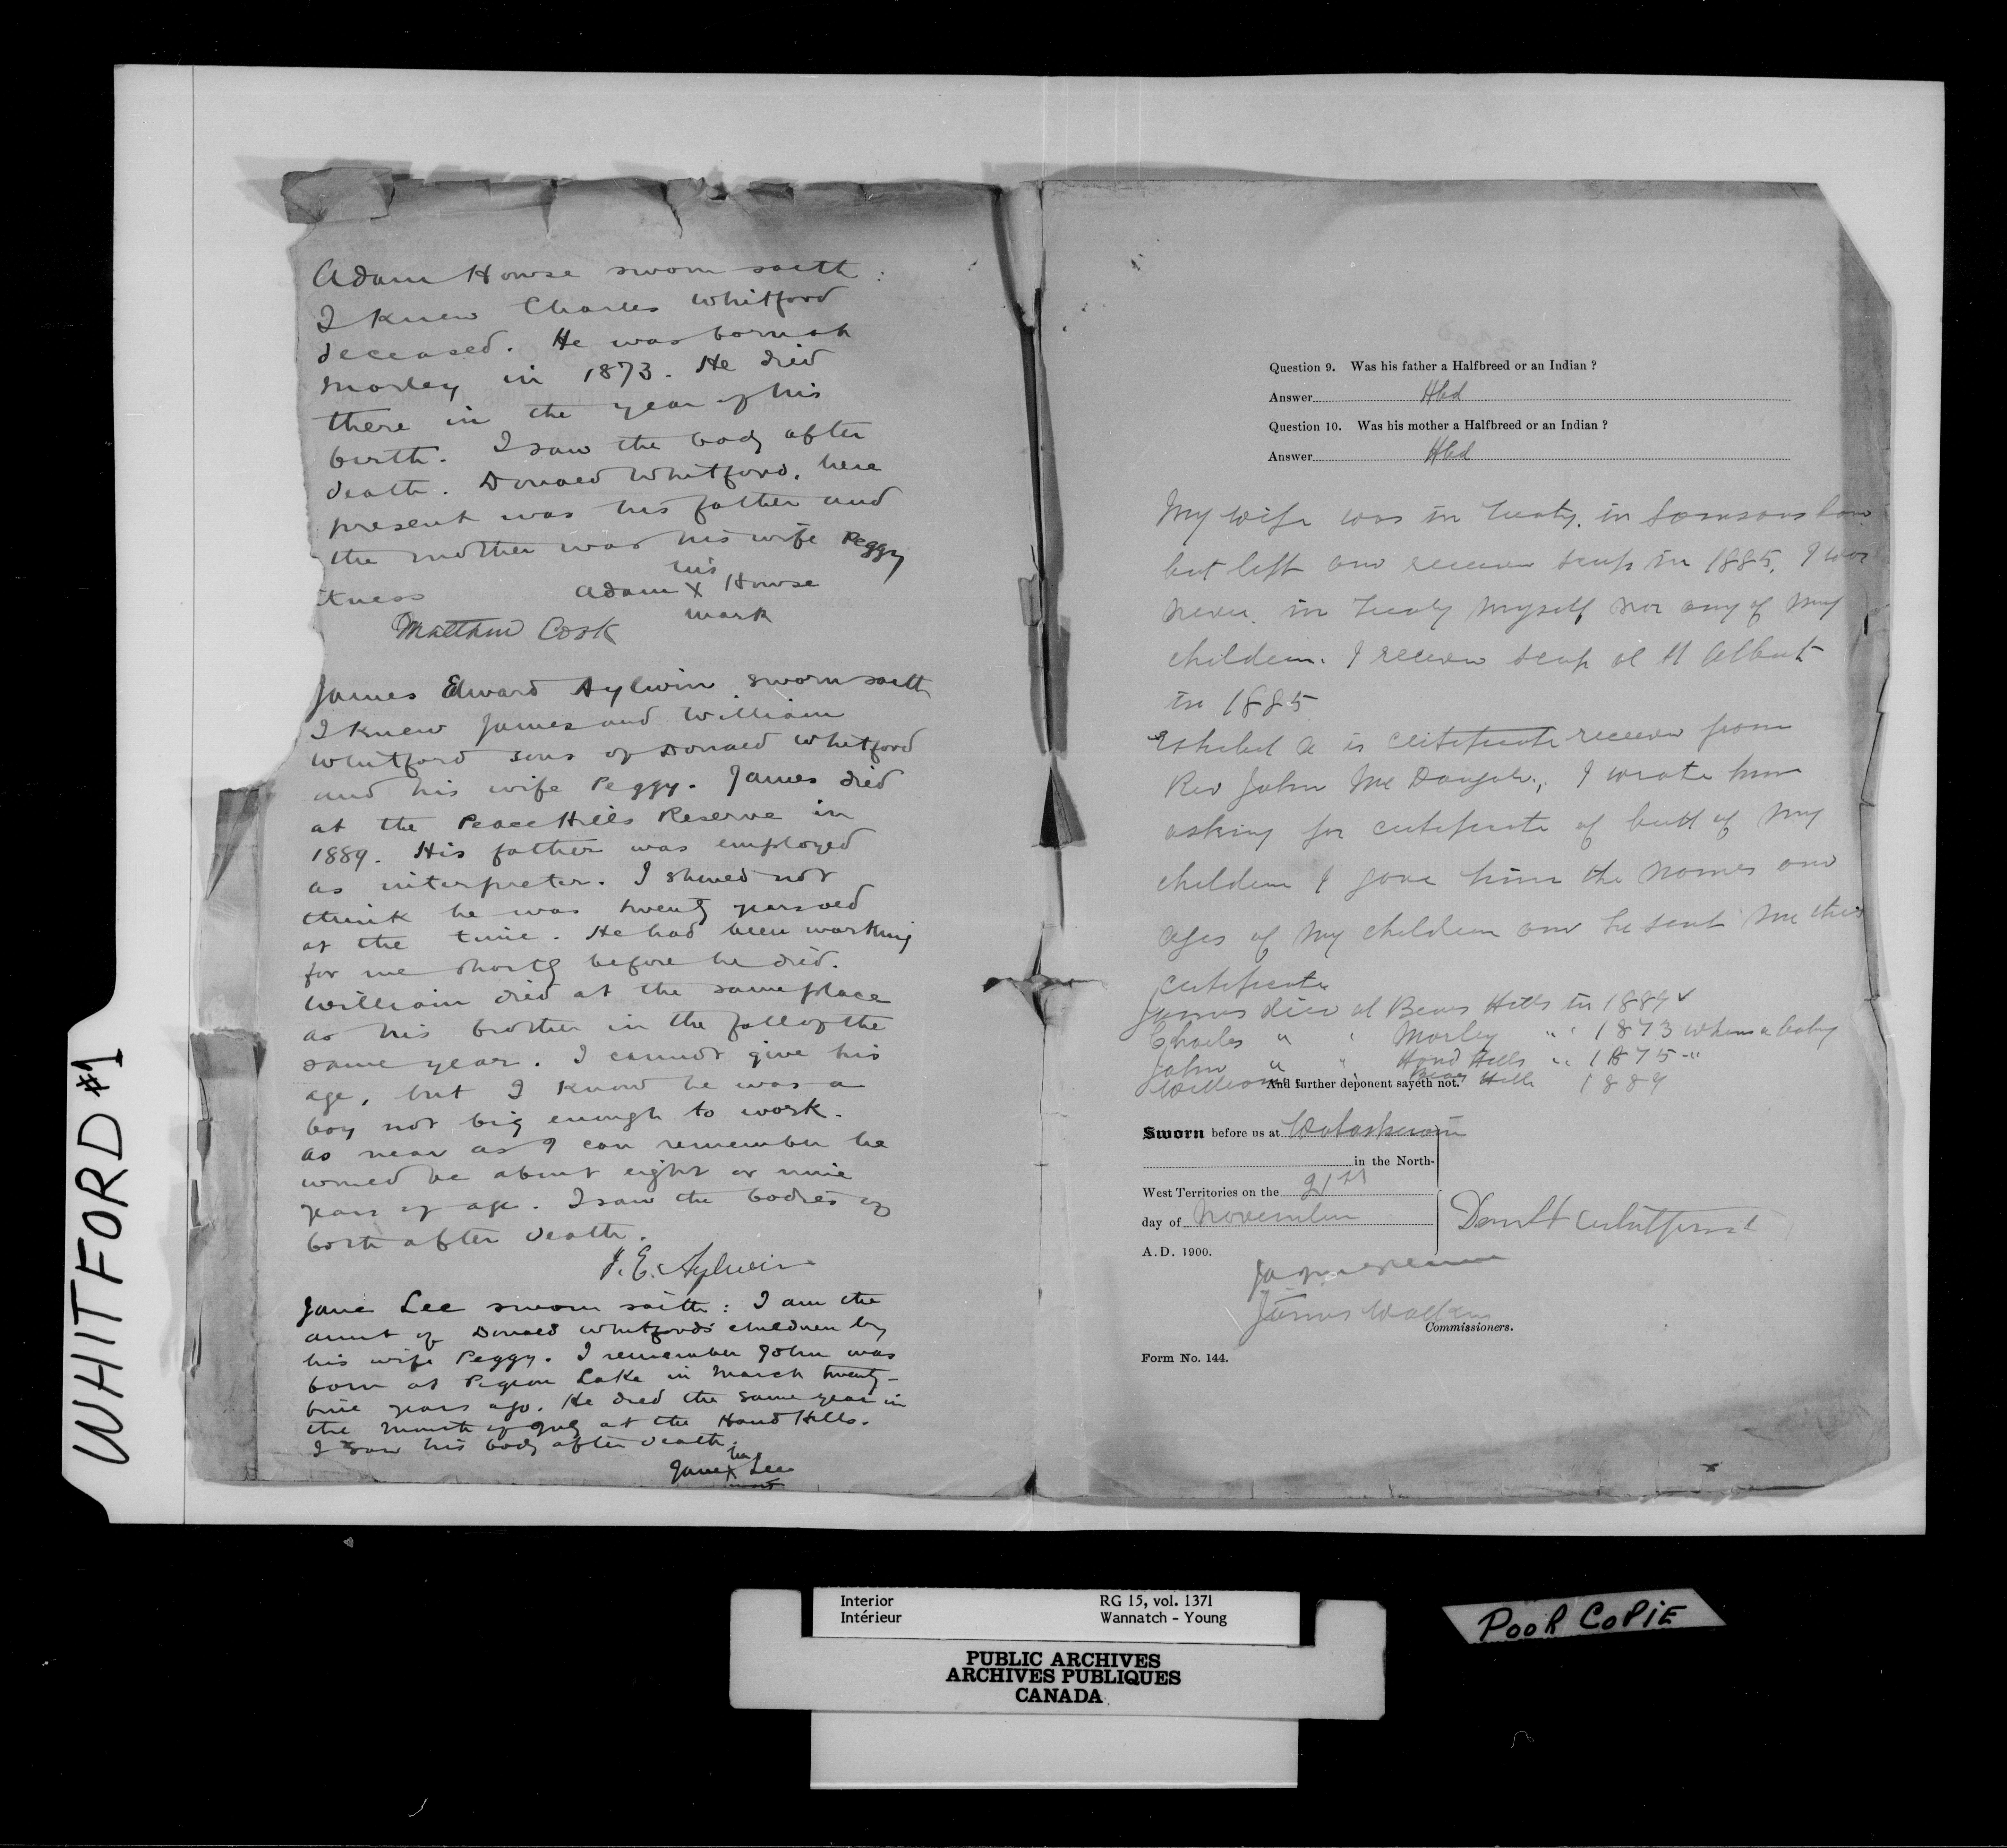 WHITFORD #1
Adam Howse sworn saith:
I knew Charles Whitford
deceased. He was born at
Morley in 1873. He died
there in the year of his
birth. I saw the body after
death. Donald Whitford, here
present was his father and
the mother was his wife Peggy
his
tness Adam X Howse
mark
Matthew Cook
James Edward Aylwin sworn saith
I knew James and William
Whitford sons of Donald Whitford
and his wife Peggy. James died
at the Peace Hills Reserve in
1889. His father was employed
as interpreter. I should not
think he was twenty years old
at the time. He had been working
for me shortly before he died.
William died at the same place
as his brother in the fall of the
same year. I cannot give his
age, but I know he was a
boy not big enough to work.
As near as I can remember he
would be about eight or nine
years of age. I saw the bodies of
both after death.
J. E. Aylwin
Jane Lee sworn saith: I am the
aunt of Donald Whitford's children by
his wife Peggy. I remember John was
born at Pigeon Lake in March twenty-
five years ago. He died the same year in
the month of July at the Hand Hills.
I saw his body after death.
her
Jane X Lee
mark
Question 9. Was his father a Halfbreed or an Indian ?
Answer Hbd
Question 10. Was his mother a Halfbreed or an Indian ?
Answer Hbd
My wife was in Treaty, in Samsons
but left and receive scrip in 1885. I was
never in Treaty myself nor any of my
children. I receive scrip at St Albert
in 1885
Exhibit A is certificate receive from
Rev John Mc Dougall, I wrote him
asking for certificate of birth of my
children I gave him the names and
ages of my children and he sent me this
certificate
James died at Bears Hills in 1889
Charles " " Morley " " 1873 when a baby
John " " Hand Hills " " 1875 "
William Bears Hills 1889
And further deponent sayeth not.
Sworn before us at Wetaskiwin
in the North-
West Territories on the 21st
day of November
A.D. 1900.
Donald Whitford
James Walker
Commissioners.
Form No. 144.
Interior RG 15, vol. 1371
Intérieur Wannatch - Young
PUBLIC ARCHIVES
ARCHIVES PUBLIQUES
CANADA
POOR COPIE